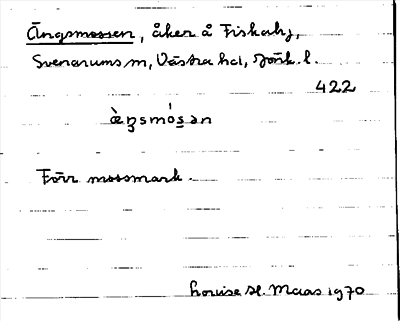 Ängsmossen, åker å Fiskaby,
Svenarums sn, Västra hd, Jönk. l.
422
æ̀ŋsmósən
Förr mossmark.
Louise H. Maas 1970